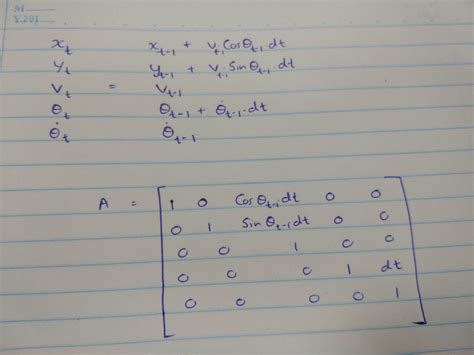 M
x_t x_{t-1} + v_{t-1} Cos θ_{t-1} dt
y_t y_{t-1} + v_{t-1} Sin θ_{t-1} · dt
v_t = v_{t-1}
θ_t θ_{t-1} + θ̇_{t-1} · dt
θ̇_t θ̇_{t-1}
A =
1 0 Cos θ_{t-1} dt 0 0
0 1 Sin θ_{t-1} dt 0 0
0 0 1 0 0
0 0 0 1 dt
0 0 0 0 1